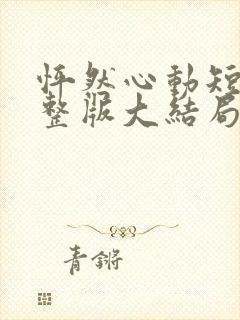 怦然心動短
整版大結局
青锵